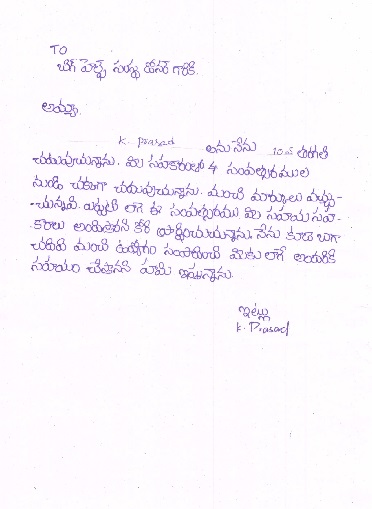 TO
బిగ్ హెల్ప్ సంస్థ వారి గారికి.
అమ్మా,
K. Prasad అను నేను 10వ తరగతి
చదువుచున్నాను. మీ సహకారంలో 4 సంవత్సరముల
నుండి చక్కగా చదువుచున్నాను. మంచి మార్కులు వచ్చు-
-చున్నవి. ఎప్పటి లాగే ఈ సంవత్సరము మీ సహాయ సహ-
-కారాలు అందిస్తారని కోరి ప్రార్థించుచున్నాను. నేను కూడా బాగా
చదివి మంచి ఉద్యోగం సంపాదించి మీకు లాగే అందరికి
సహాయం చేస్తానని హామి ఇస్తున్నాను.
ఇట్లు
K. Prasad